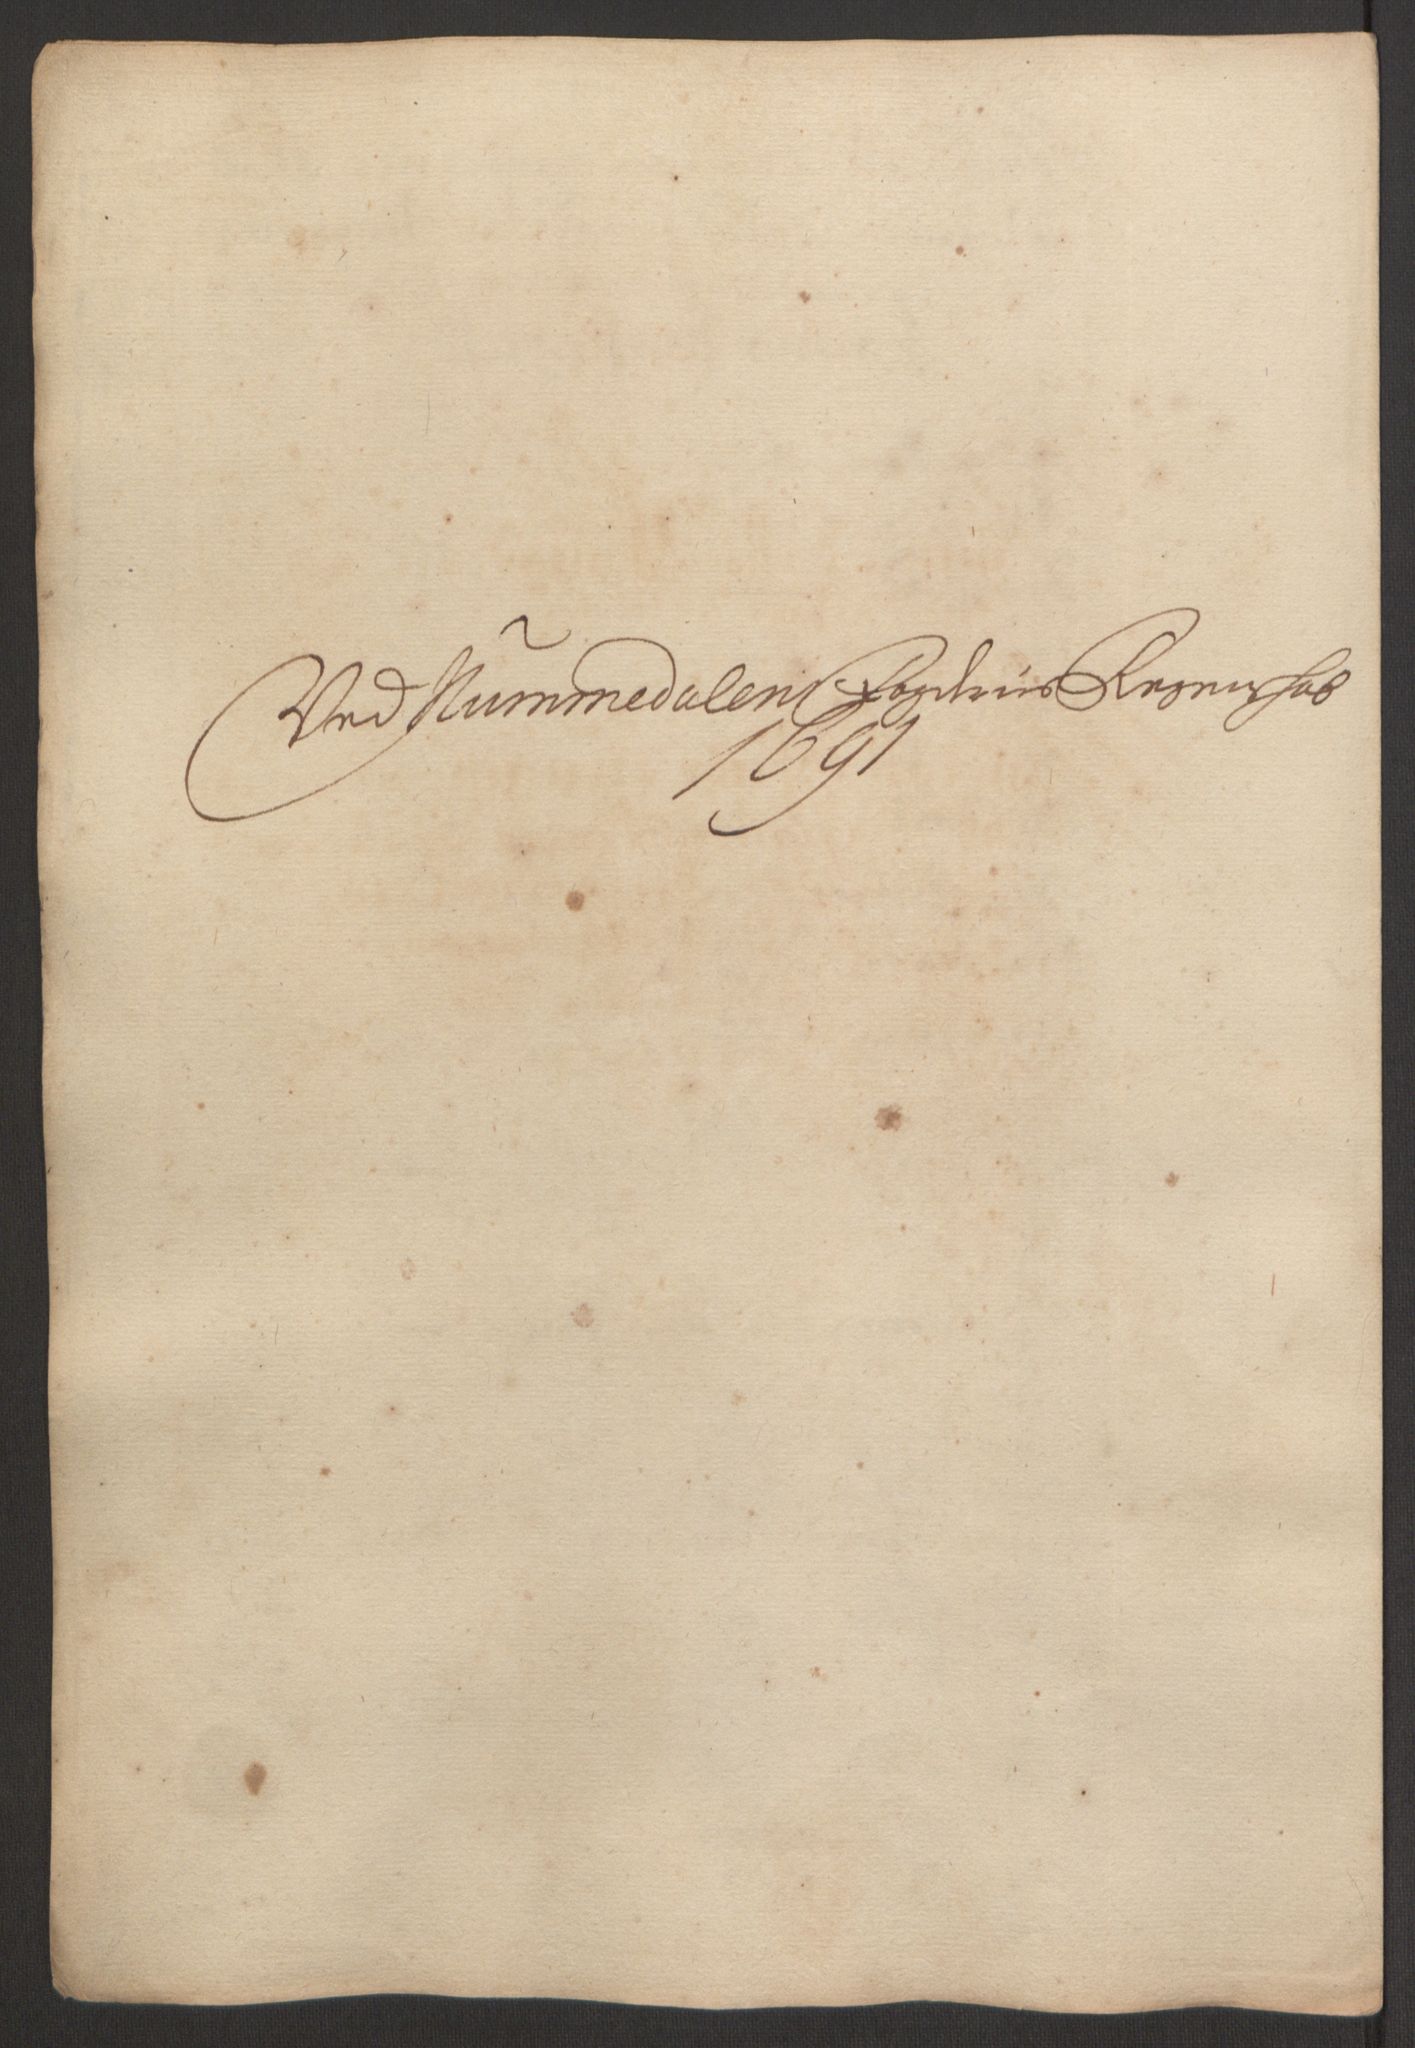 Ved Nummedalens Fogderies Regenskab
1691